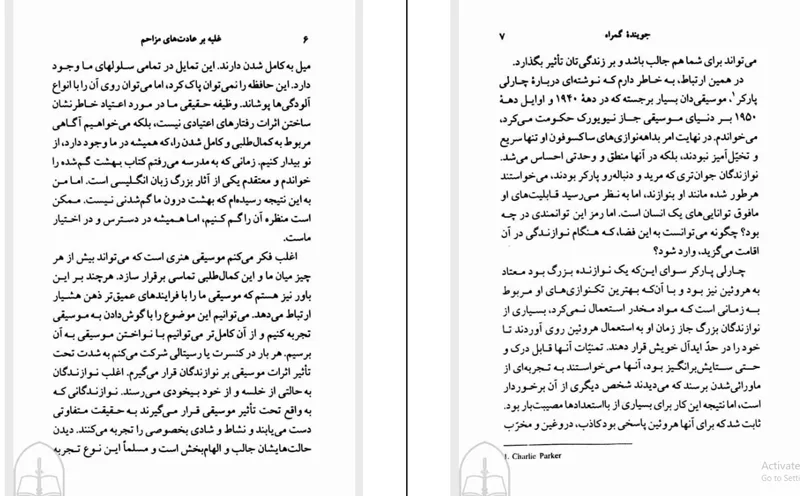 غلبه بر عادت‌های مزاحم ۶
میل به کامل شدن دارند. این تمایل در تمامی سلولهای ما وجود
دارد. این حافظه را نمی‌توان پاک کرد، اما می‌توان روی آن را با انواع
آلودگی‌ها پوشاند. وظیفه حقیقی ما در مورد اعتیاد خاطرنشان
ساختن اثرات رفتارهای اعتیادی نیست، بلکه می‌خواهیم آگاهی
مربوط به کمال‌طلبی و کامل شدن را، که همیشه در ما وجود دارد، از
نو بیدار کنیم. زمانی که به مدرسه می‌رفتم کتاب بهشت گم‌شده را
خواندم و معتقدم یکی از آثار بزرگ زبان انگلیسی است. اما من
به این نتیجه رسیده‌ام که بهشت درون ما گم‌شدنی نیست. ممکن
است منظره آن را گم کنیم، اما همیشه در دسترس و در اختیار
ماست.
اغلب فکر می‌کنم موسیقی هنری است که می‌تواند بیش از هر
چیز میان ما و این کمال‌طلبی تماسی برقرار سازد. هرچند بر این
باور نیز هستم که موسیقی ما را با فرایندهای عمیق‌تر ذهن هشیار
ارتباط می‌دهد. می‌توانیم این موضوع را با گوش‌دادن به موسیقی
تجربه کنیم و از آن کامل‌تر می‌توانیم با نواختن موسیقی به آن
برسیم. هر بار در کنسرت یا رسیتالی شرکت می‌کنم به شدت تحت
تأثیر اثرات موسیقی بر نوازندگان قرار می‌گیرم. اغلب نوازندگان
به حالتی از خلسه و از خود بیخودی می‌رسند. نوازندگانی که
به واقع تحت تأثیر موسیقی قرار می‌گیرند به حقیقت متفاوتی
دست می‌یابند و نشاط و شادی بخصوصی را تجربه می‌کنند. دیدن
حالت‌هایشان جالب و الهام‌بخش است و مسلماً این نوع تجربه
جویندهٔ گمراه ۷
می‌تواند برای شما هم جالب باشد و بر زندگی‌تان تأثیر بگذارد.
در همین ارتباط، به خاطر دارم که نوشته‌ای دربارهٔ چارلی
پارکر۱، موسیقی‌دان بسیار برجسته که در دههٔ ۱۹۴۰ و اوایل دههٔ
۱۹۵۰ بر دنیای موسیقی جاز نیویورک حکومت می‌کرد،
می‌خواندم. در نهایت امر بداهه‌نوازی‌های ساکسوفون او تنها سریع
و تخیّل‌آمیز نبودند، بلکه در آنها منطق و وحدتی احساس می‌شد.
نوازندگان جوان‌تری که مرید و دنباله‌رو پارکر بودند، می‌خواستند
هرطور شده مانند او بنوازند، اما به نظر می‌رسید قابلیت‌های او
مافوق توانایی‌های یک انسان است. اما رمز این توانمندی در چه
بود؟ چگونه می‌توانست به این فضا، که هنگام نوازندگی در آن
اقامت می‌گزید، وارد شود؟
چارلی پارکر سوای این‌که یک نوازنده بزرگ بود معتاد
به هروئین نیز بود و با آن‌که بهترین تکنوازی‌های او مربوط
به زمانی است که مواد مخدر استعمال نمی‌کرد، بسیاری از
نوازندگان بزرگ جاز زمان او به استعمال هروئین روی آوردند تا
خود را در حدّ ایدآل خویش قرار دهند. تمنیّات آنها قابل درک و
حتی ستایش‌برانگیز بود، آنها می‌خواستند به تجربه‌ای از
ماورائی‌شدن برسند که می‌دیدند شخص دیگری از آن برخوردار
است، اما نتیجه این کار برای بسیاری از بااستعدادها مصیبت‌بار بود.
ثابت شد که برای آنها هروئین پاسخی بود کاذب، دروغین و مخرّب
1. Charlie Parker
Activate
Go to Setti